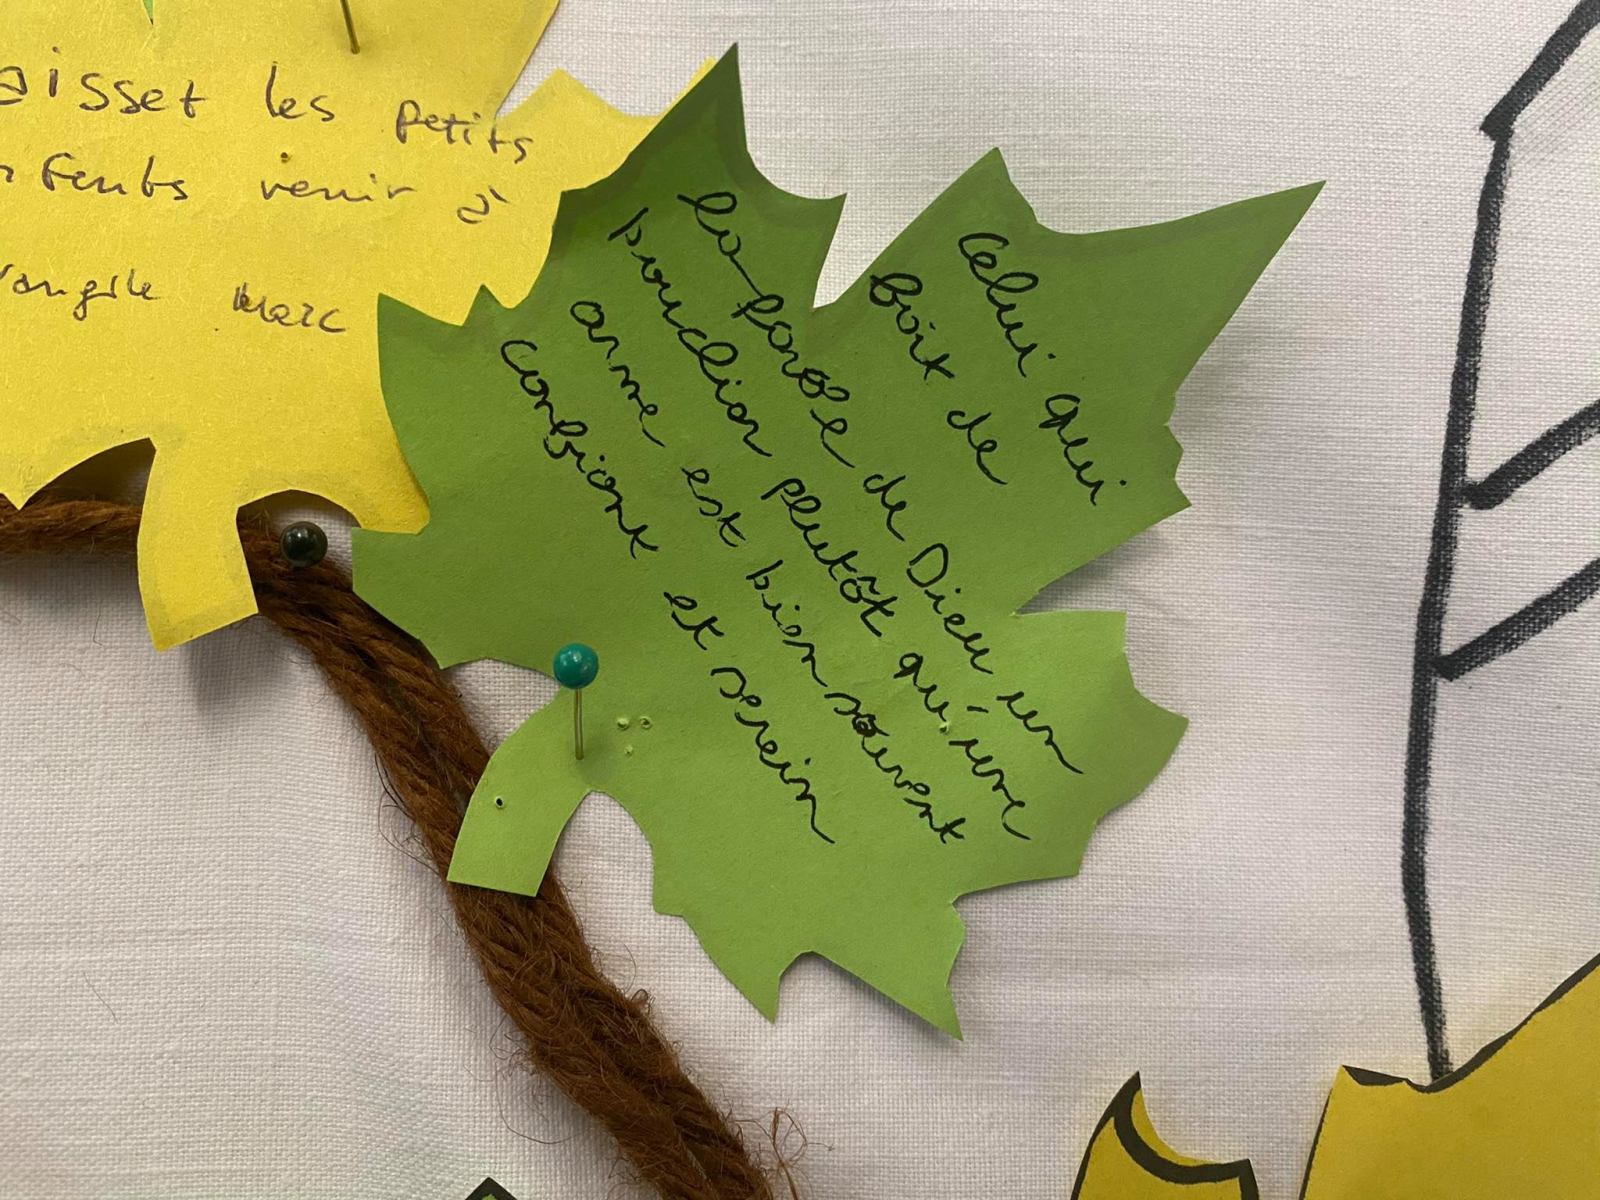 aissez les petits
nfants venir à
vangile Marc
Celui qui
fait de
la parole de Dieu un
bouclier plutôt qu'une
arme est bien souvent
confiant et serein